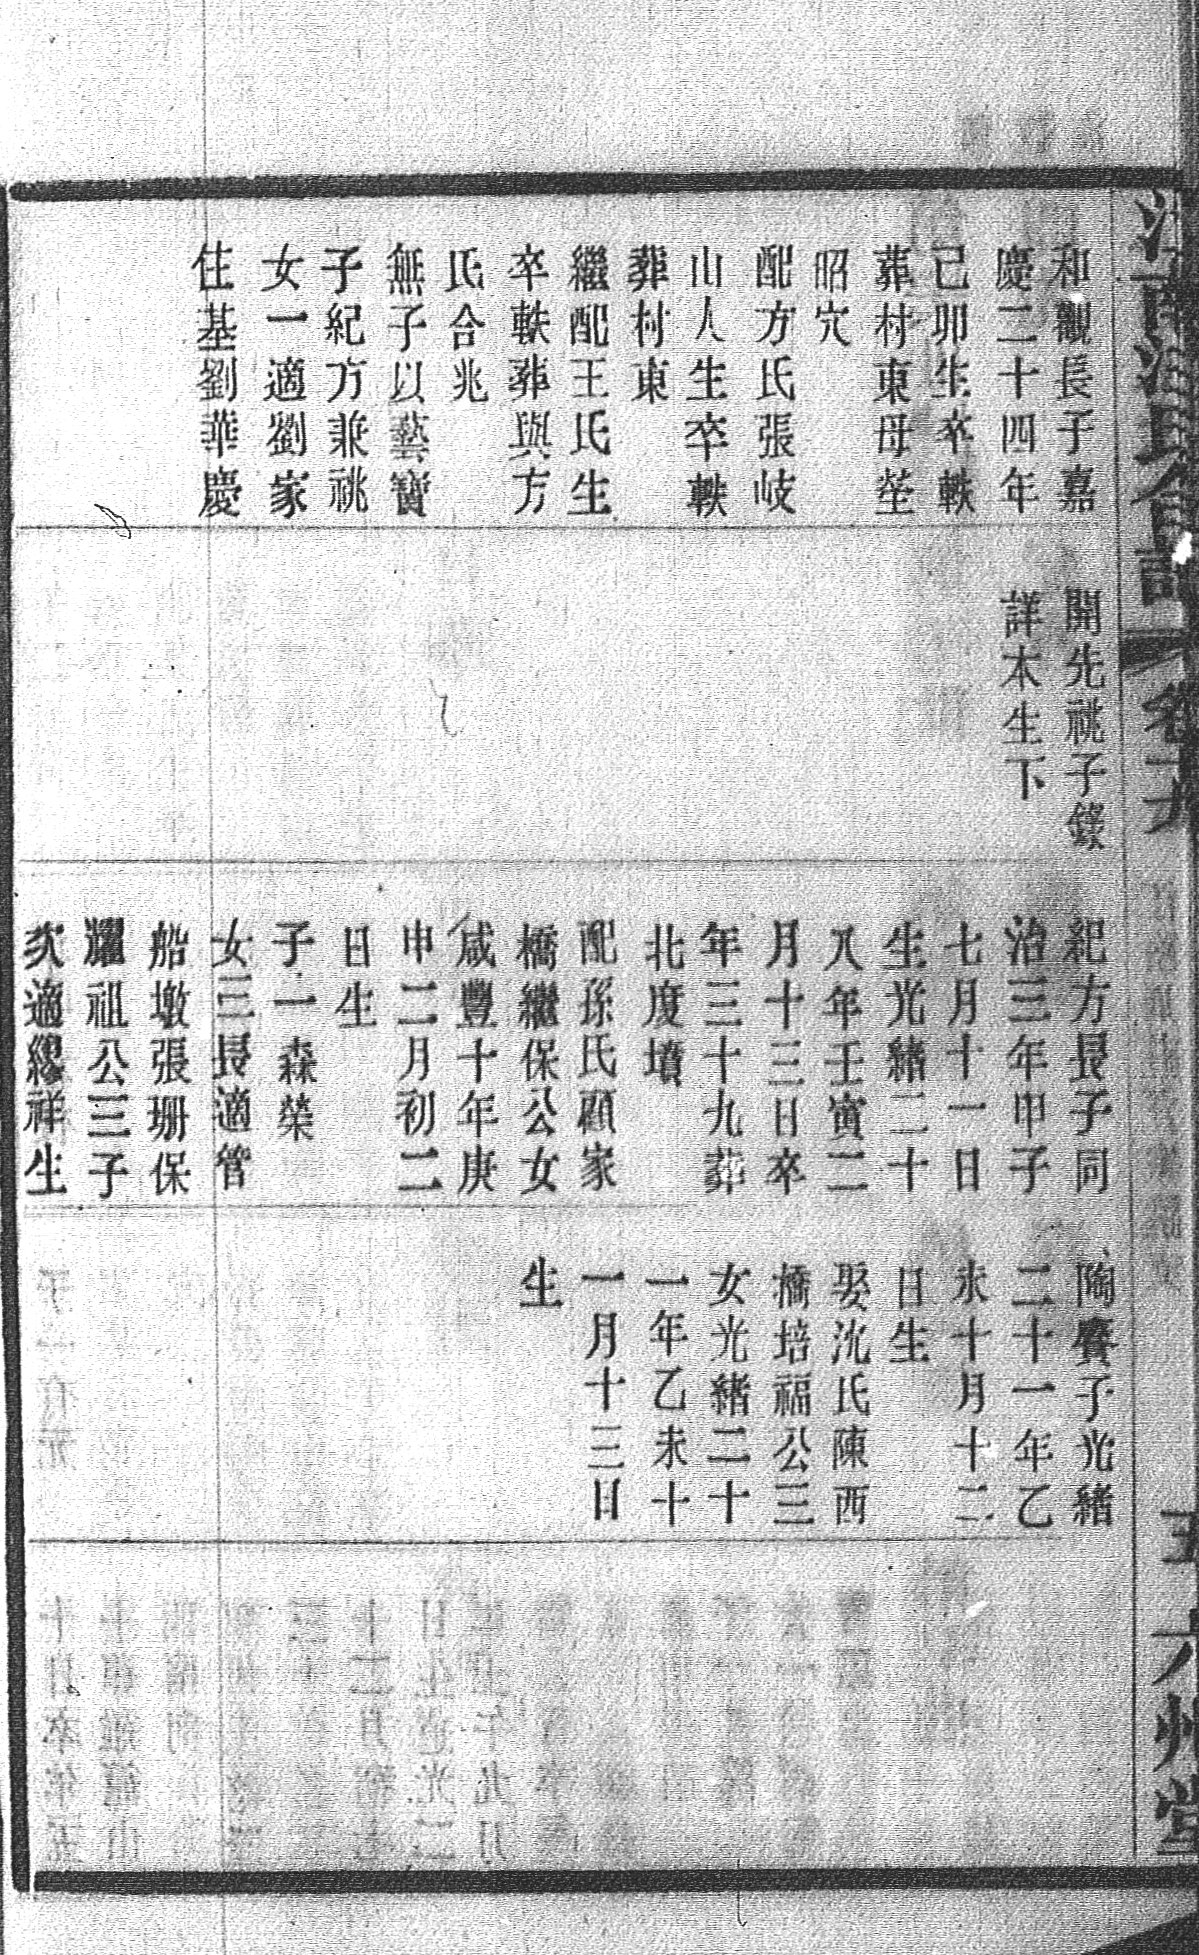 和觀長子嘉
慶二十四年
己卯生卒軼
葬村東母塋
昭穴
配方氏張岐
山人生卒軼
葬村東
繼配王氏生
卒軼葬與方
氏合兆
無子以藝寶
子紀方兼祧
女一適劉家
住基劉華慶
開先祧子錄
詳本生下
紀方長子同
治三年甲子
七月十一日
生光緒二十
八年壬寅二
月十三日卒
年三十九葬
北度墳
配孫氏顧家
橋繼保公女
咸豐十年庚
申二月初二
日生
子一森榮
女三長適管
船墩張珊保
耀祖公三子
次適繆祥生
陶賡子光緒
二十一年乙
未十月十二
日生
娶沈氏陳西
橋培福公三
女光緒二十
一年乙未十
一月十三日
生
卷十九
五六州堂